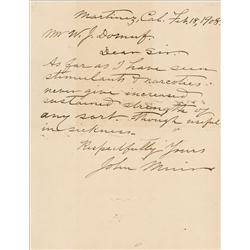 Martinez, Cal. Feb. 18, 1908.
Mr W. J. 
Dear Sir.
As far as I have seen
stimulants & narcotics
never give increased
sustained strength of
any sort. though useful
in sickness.
Respectfully Yours
John Muir